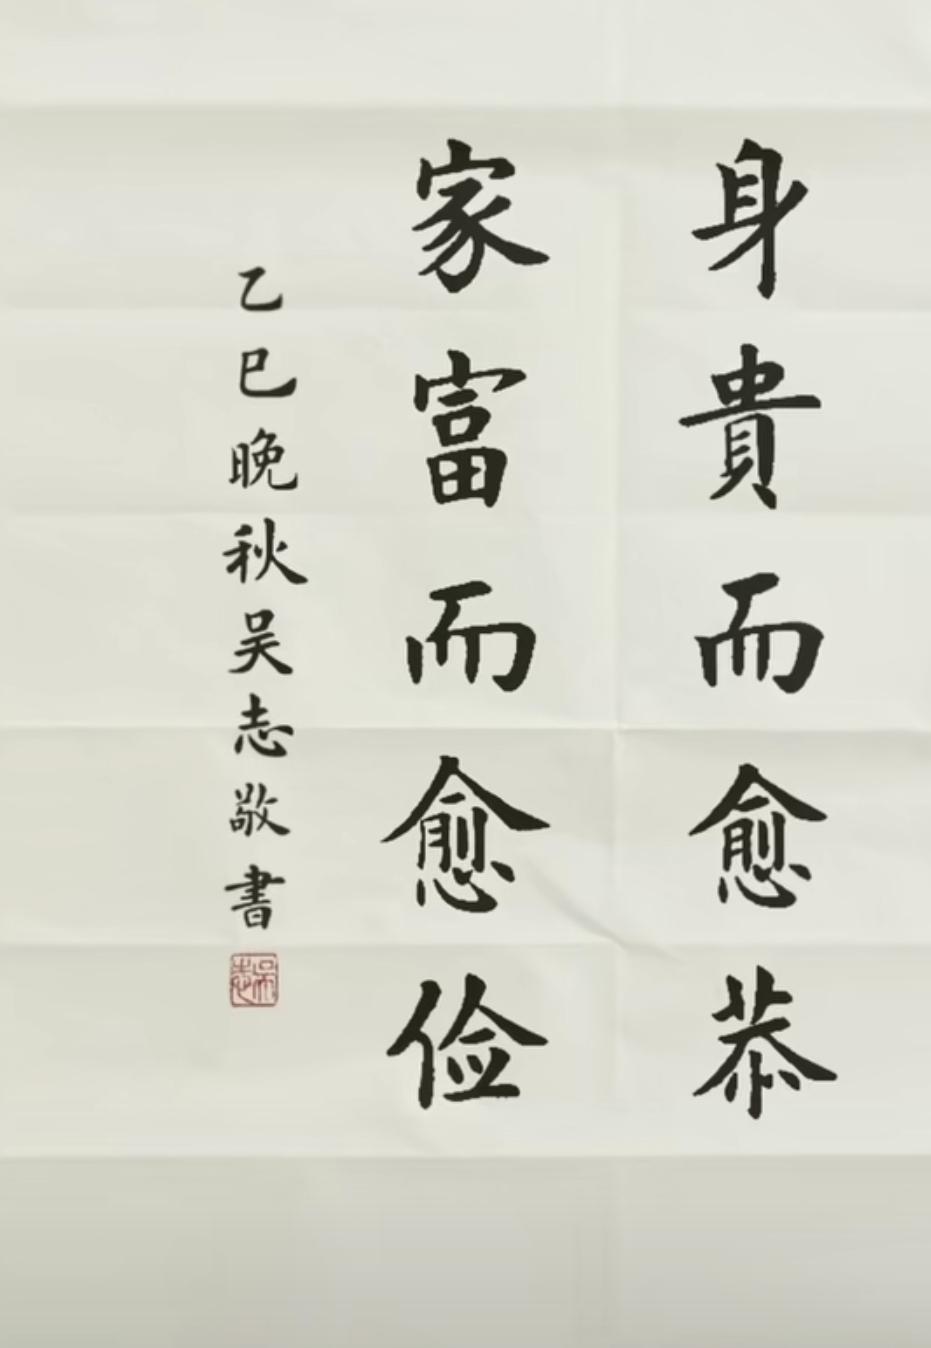 身貴而愈恭
家富而愈俭
乙巳晚秋吴志敬書
吴志